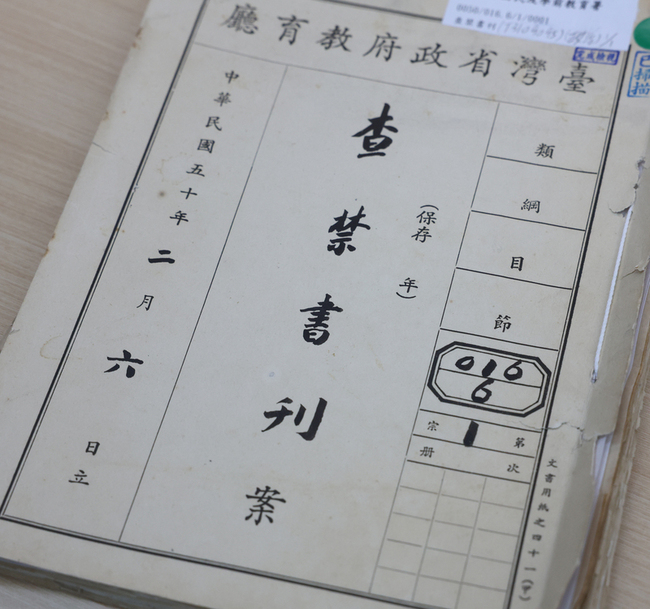 0050/016.6/1/0001
臺灣省政府教育廳
完成檢視
已掃描
類
綱
目
節
016
6
第1宗
次 册
(保存 年)
查禁書刊案
中華民國五十年二月六日立
文書用紙之四十一(甲)